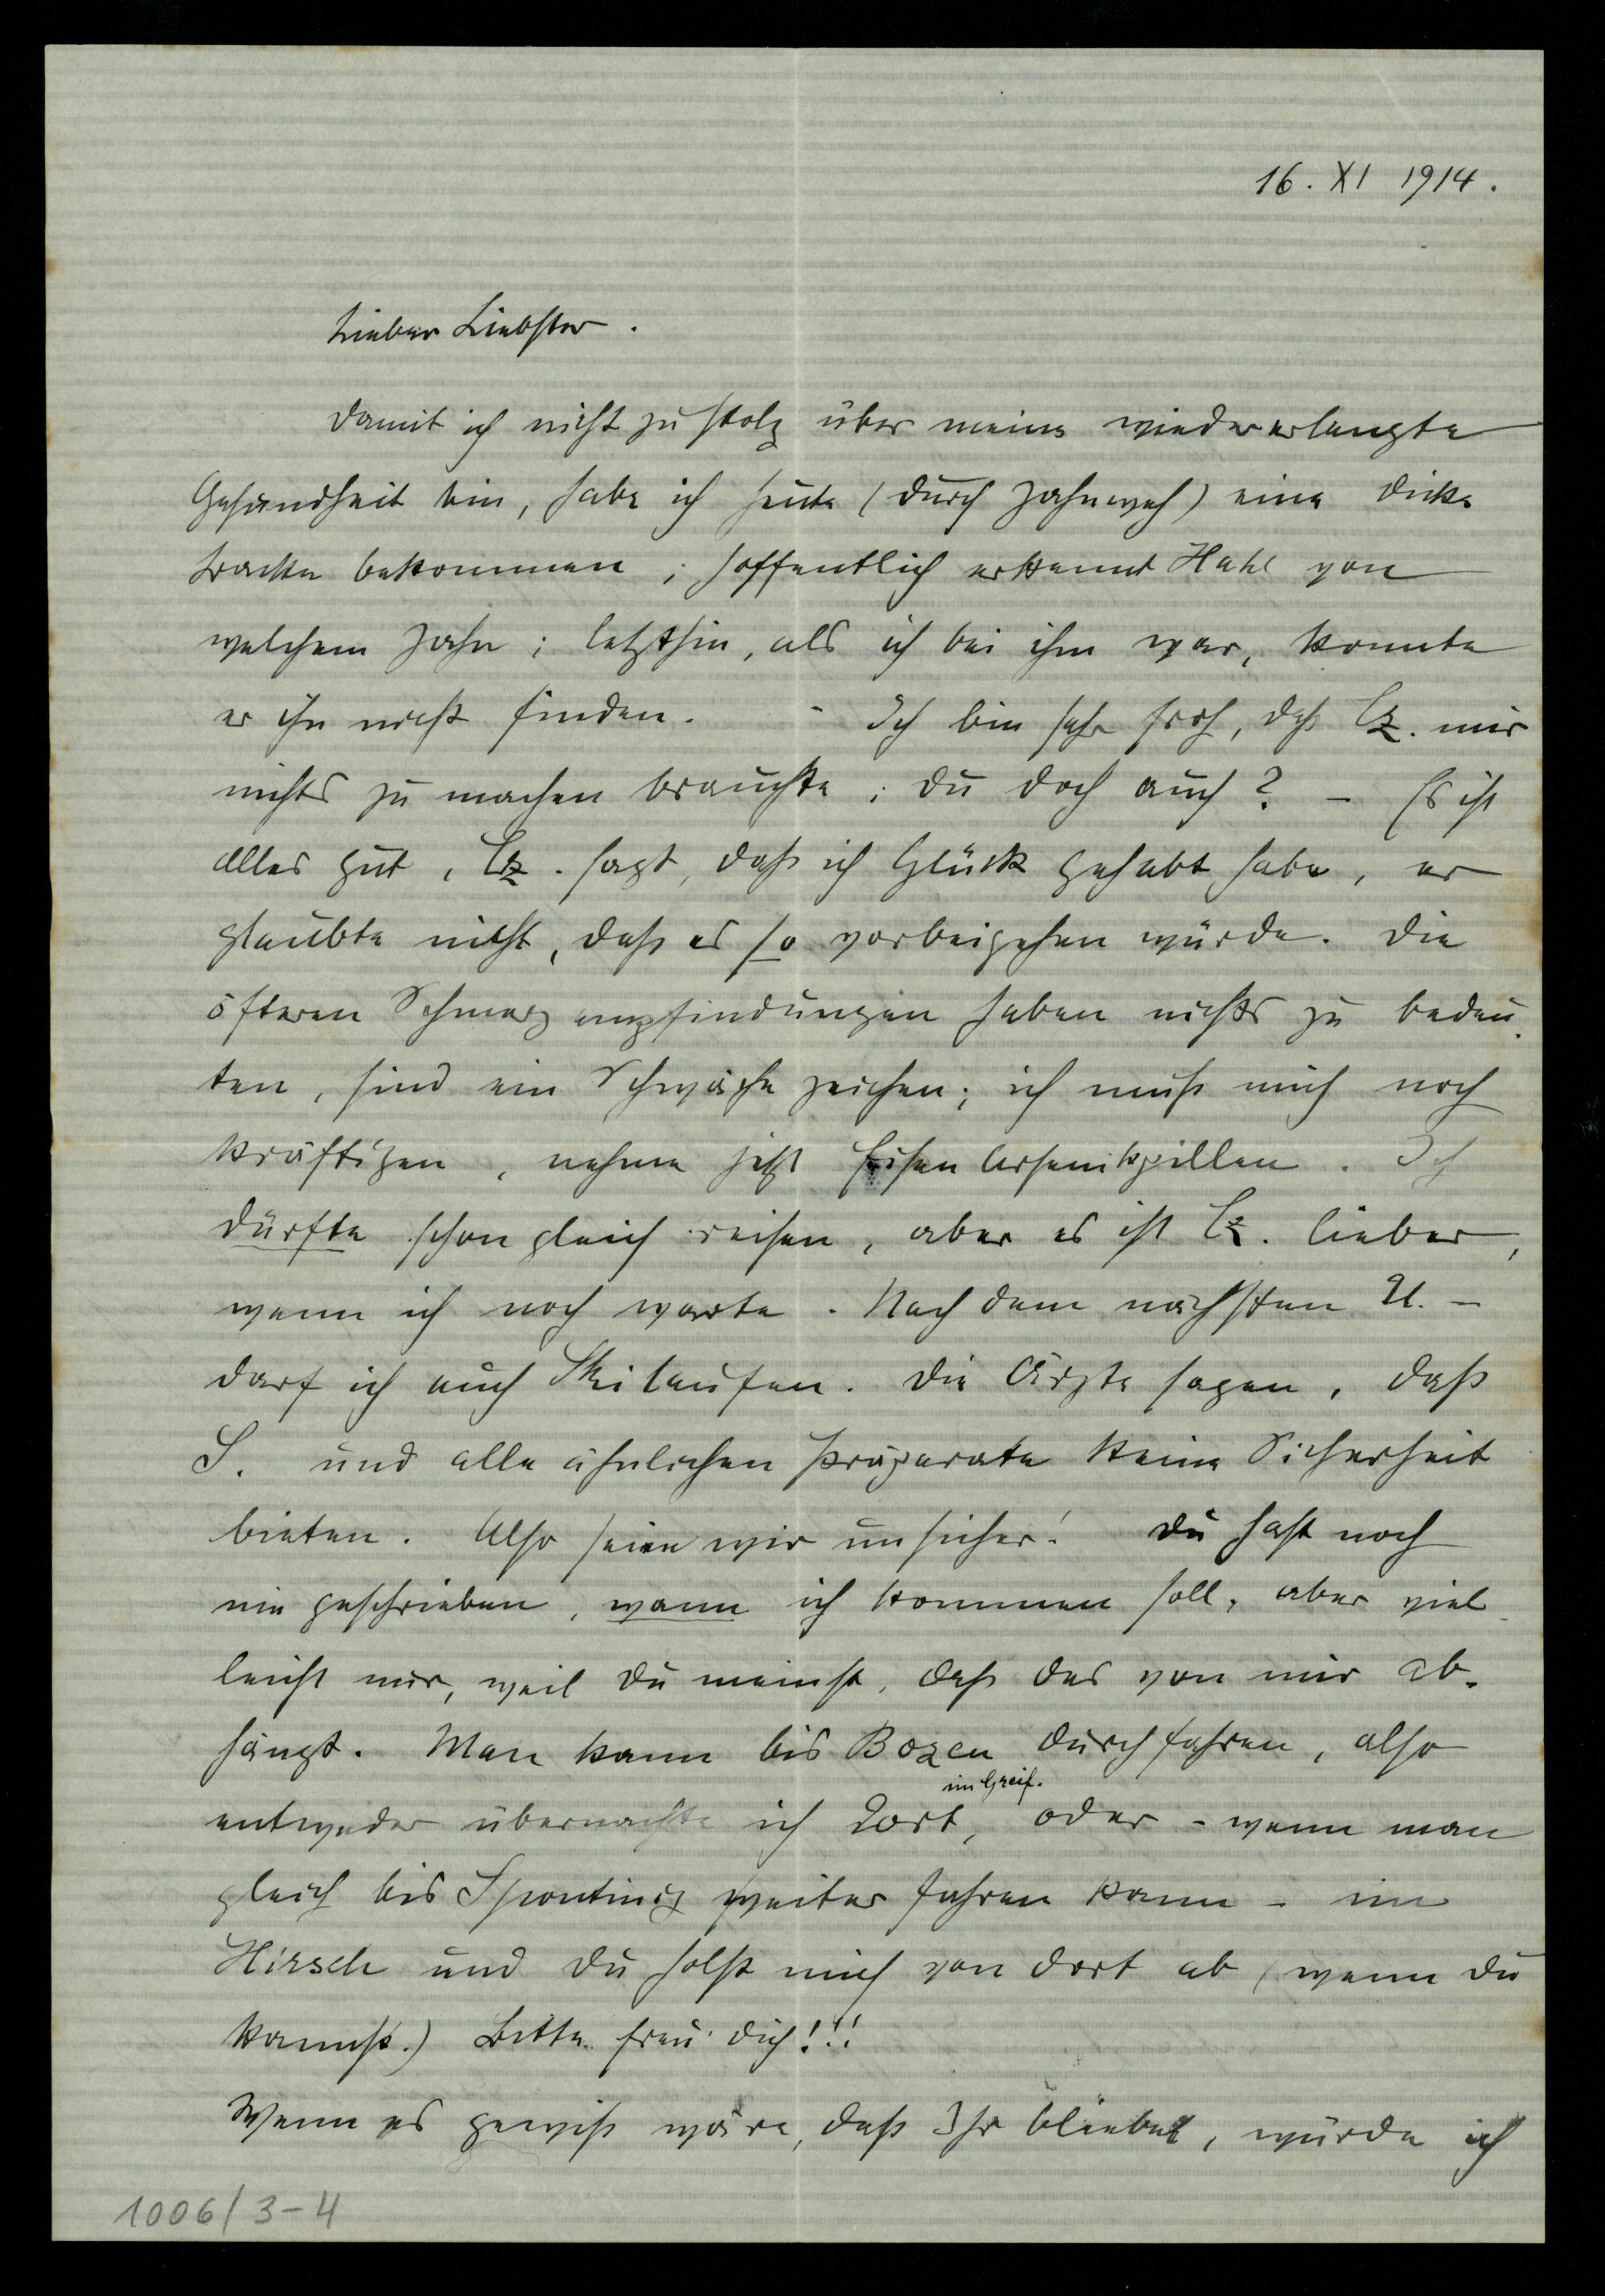 16. XI 1914.
Lieber Liebster.
Damit ich nicht zu stolz über meine wiedererlangte
Gesundheit bin, habe ich heute (durch Zahnweh) eine dicke
Backe bekommen; hoffentlich erkennt Hahl von
welchem Zahn; letzthin, als ich bei ihm war, konnte
er ihn nicht finden. - Ich bin sehr froh, daß Cz. mir
nichts zu machen brauchte; Du doch auch? – Es ist
alles gut, Cz. sagt, daß ich Glück gehabt habe, er
glaubte nicht, daß es so vorbeigehen würde. Die
öfteren Schmerzempfindungen haben nichts zu bedeu-
ten, sind ein Schwächezeichen; ich muß mich noch
kräftigen, nehme jetzt Eisen Arsenikpillen. Ich
dürfte schon gleich reisen, aber es ist Cz. lieber,
wenn ich noch warte. Nach dem nächsten U. –
darf ich auch Skilaufen. Die Ärzte sagen, daß
S. und alle ähnlichen Präparate keine Sicherheit
bieten. Also seien wir unsicher! Du hast noch
nie geschrieben, wann ich kommen soll, aber viel-
leicht nur, weil Du meinst, daß das von mir ab-
hängt. Man kann bis Bozen durchfahren, also
im Greif.
entweder übernachte ich dort, oder - wenn man
gleich bis Spondinig weiter fahren kann - im
Hirsch und Du holst mich von dort ab (wenn Du
kannst.) Bitte freu' Dich!!!
Wenn es gewiß wäre, daß Ihr bliebet, würde ich
1006/3-4